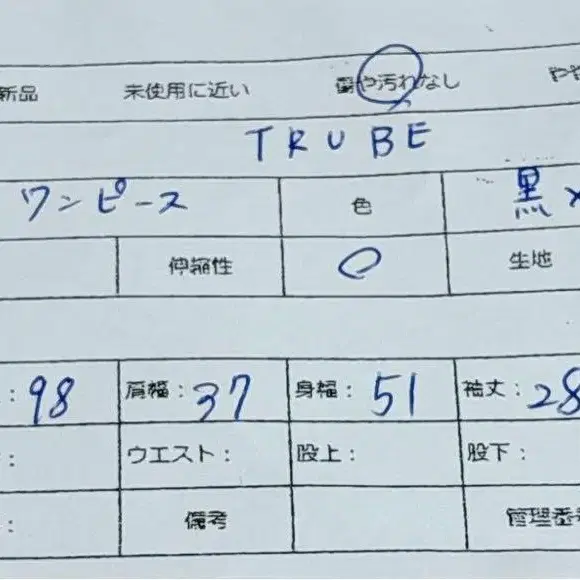 新品 未使用に近い 傷や汚れなし やや
TRUBE
ワンピース 色 黒
伸縮性 ○ 生地
: 98 肩幅: 37 身幅: 51 袖丈: 28
: ウエスト: 股上: 股下:
: 備考 管理番